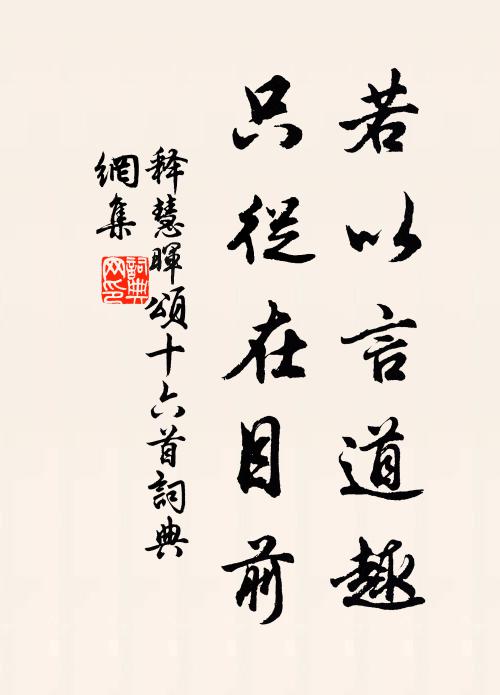 若以言道趣
只從在目前
释慧暉頌十六首詞典
網集
詞典網印